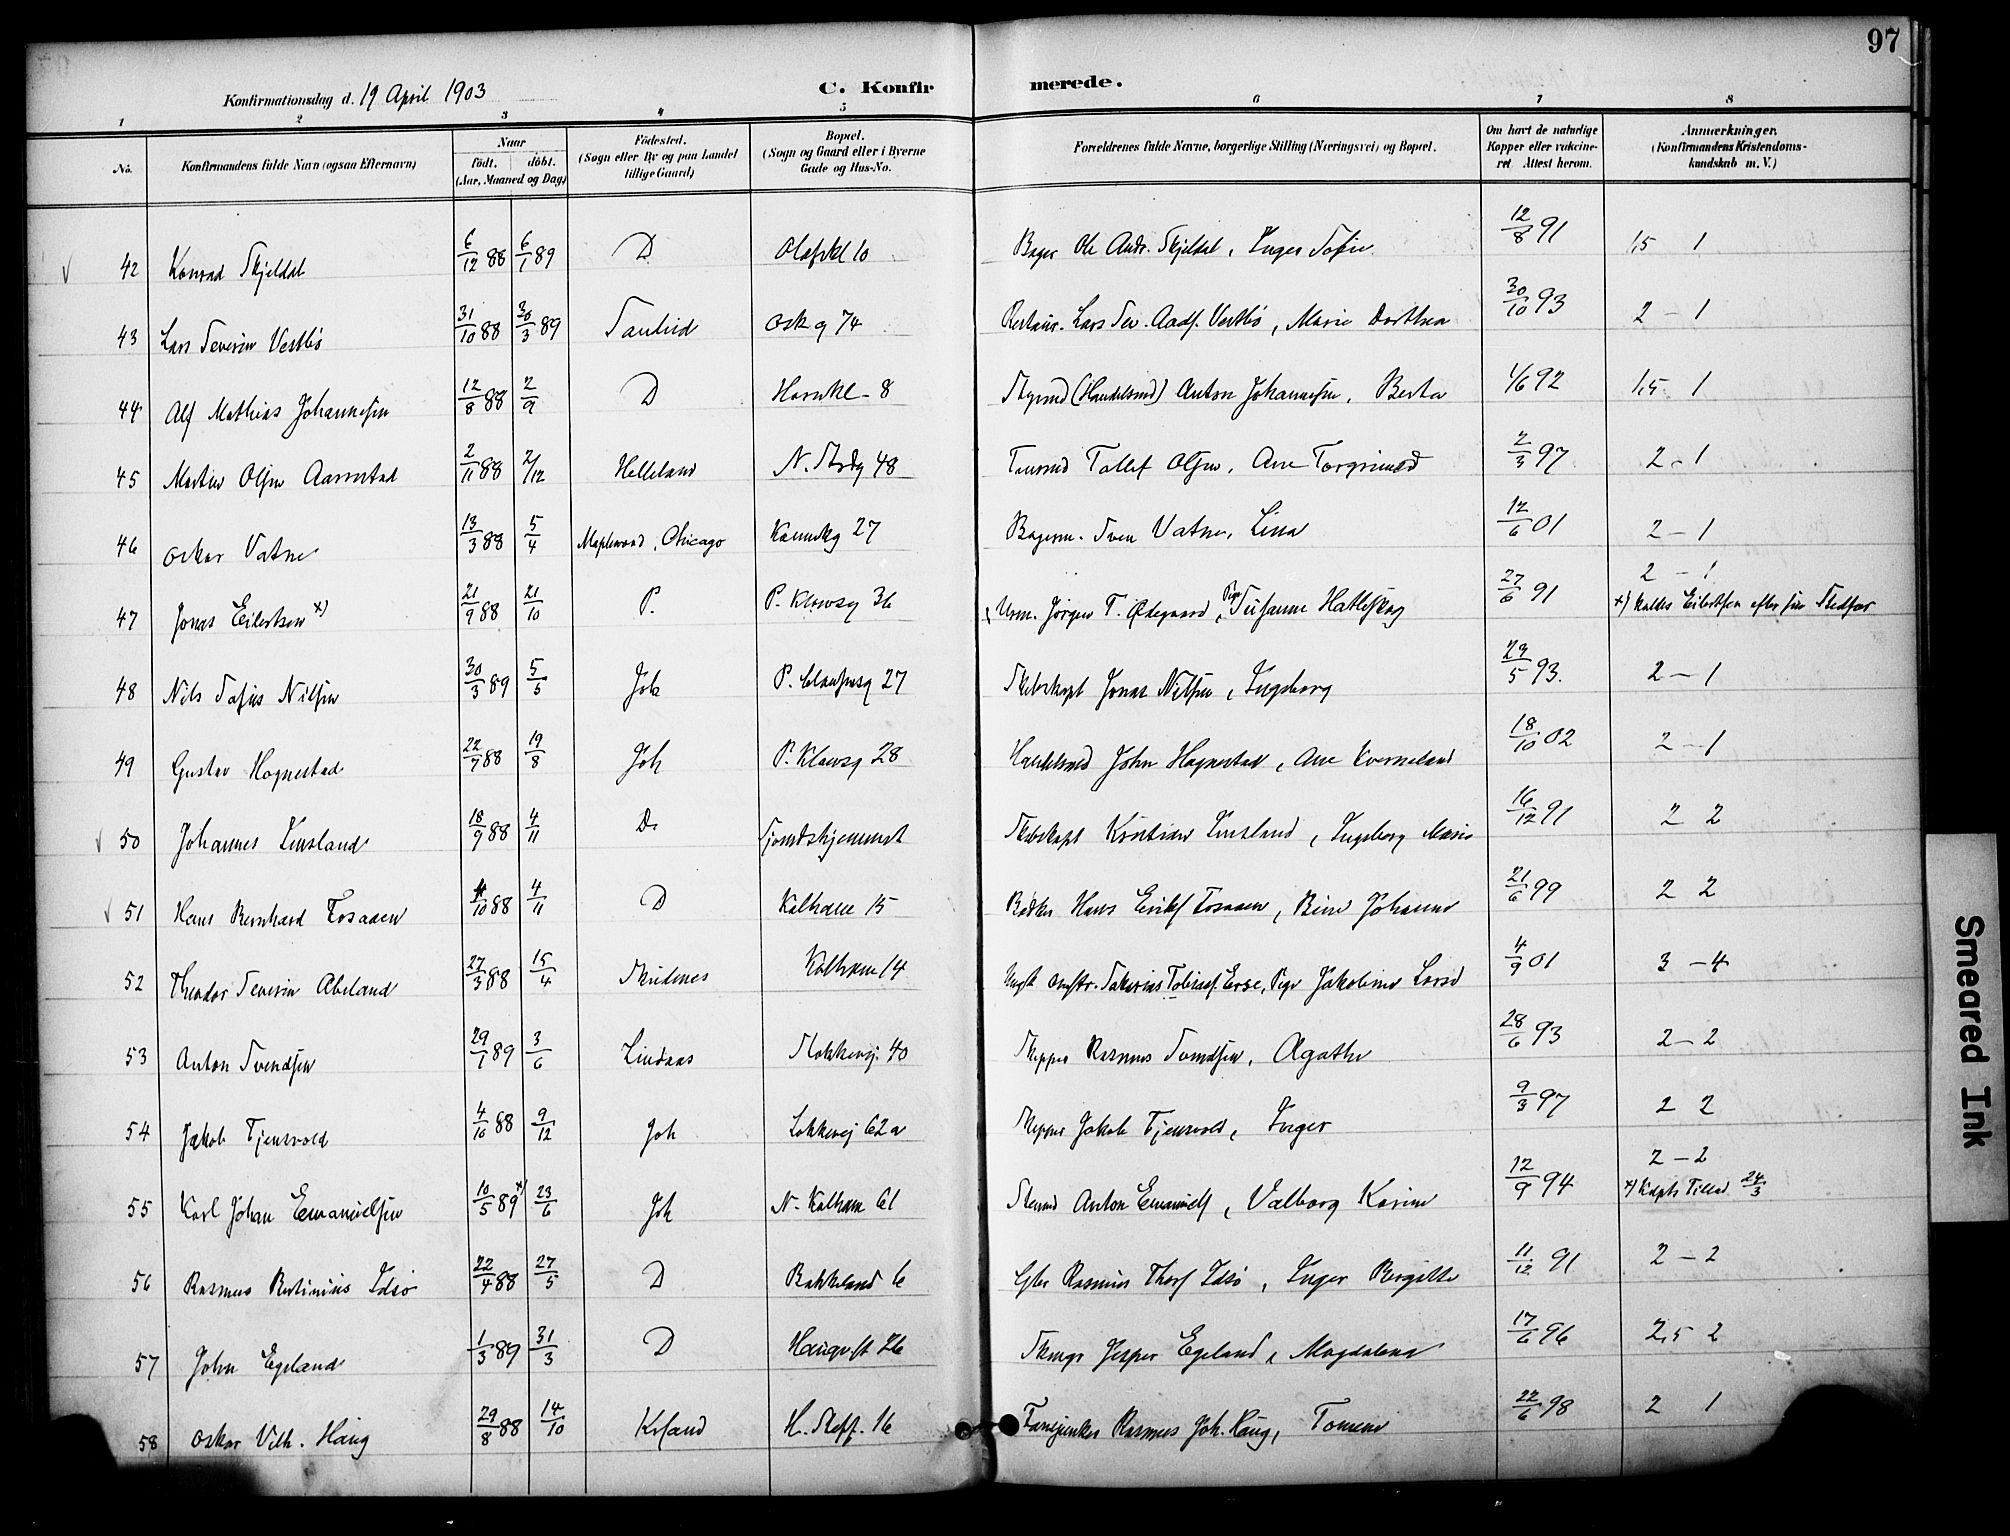 97
Konfirmationsdag d. 19 April 1903 C. Konfir merede.
1 2 3 4 5 6 7 8
No. Konfirmandens fulde Navn (ogsaa Efternavn) Naar födt. döbt. (Aar, Maaned og Dag) Födested. (Sogn eller By og paa Landet tillige Gaard) Bopæl. (Sogn og Gaard eller i Byerne Gade og Hus-No. Forældrenes fulde Navne, borgerlige Stilling (Næringsvei) og Bopæl. Om havt de naturlige Kopper eller vakcineret. Attest herom. Anmærkninger. (Konfirmandens Kristendomskundskab m. V.)
42 Konrad Skjeldal 6/12 88 6/1 89 D Olafskl 10 Bager Ole Andr. Skjeldal, Inger Sofie 12/8 91 1,5 1
43 Lars Severin Vestbö 31/10 88 30/3 89 Sandeid Osk g 74 Restaur. Lars Sev. Aads. Vestbö, Marie Dorthea 30/10 93 2 - 1
44 Alf Mathias Johannesen 12/8 88 2/9 D Hornkl - 8 (Handelsmd) Anton Johannesen, Berta 1/6 92 1,5 1
45 Martin Olsen Aarrestad 2/11 88 2/12 Helleland N. Strdg 48 Tollef Olsen, Ane Torgrimsd 2/3 97 2 - 1
46 Oskar Vatne 13/3 88 5/4 Maplewood, Chicago 27 Bagerm. Sven Vatne, Lina 12/6 01 2 - 1
47 Jonas Eilertsen x) 21/9 88 21/10 P. P. Klowsg 36 Urm. Jörgen T. Ödegaard, Pige Susanne Hatleskog 27/6 91 2 - 1
x) kaldes Eilertsen efter sin Stedfar
48 Nils Nilsen 30/3 89 5/5 Joh P. Clausensg 27 Skibskapt Jonas Nilsen, Ingeborg 23/5 93. 2 - 1
49 Gustav Hognestad 22/7 88 19/8 Joh P. Klowsg 28 Handelsmd John Hognestad, Ane Kverneland 18/10 02 2 - 1
50 Johannes Linsland 18/9 88 4/11 D. Skibskapt Kristian Linsland, Ingeborg Marie 16/12 91 2 2
51 Hans Bernhard Fosaaen 4/10 88 4/11 D Kalham 15 Bödker Hans Eriks. Fosaaen, Bine Johanne 21/6 99 2 2
52 Theodor Severin Abeland 27/3 88 15/4 Skudenes Kalham 14 Ungk Sakarias Tobiass. Erse, Pige Jakobine Larsd 4/9 01 3 - 4
53 Anton Svendsen 29/1 89 3/6 Lindaas Stokkevej 40 Skipper Rasmus Svendsen, Agathe 28/6 93 2 - 2
54 Jakob Tjensvold 4/10 88 9/12 Joh Lökkevej 62a Skipper Jakob Tjensvold, Inger 9/3 97 2 2
55 Karl Johan Emanuelsen 10/5 89 x) 23/6 Joh N. Kalham 61 Anton Emanuels, Valborg Karine 12/9 94 2 - 2
x) Kapts Tillad 24/3
56 Rasmus Bertinius Idsö 22/4 88 27/5 D Bakkeland 6 Rasmus Thors Idsö, Inger Bergitte 11/12 91 2 - 2
57 John Egeland 1/3 89 31/3 D 26 Jesper Egeland, Magdalena 17/6 96 2,5 2
58 Oskar Vilh. Haug 29/8 88 14/10 Krsand H. Steff. 16 Fanejunker Rasmus Joh. Haug, Tomine 22/6 98 2 1
Smeared Ink